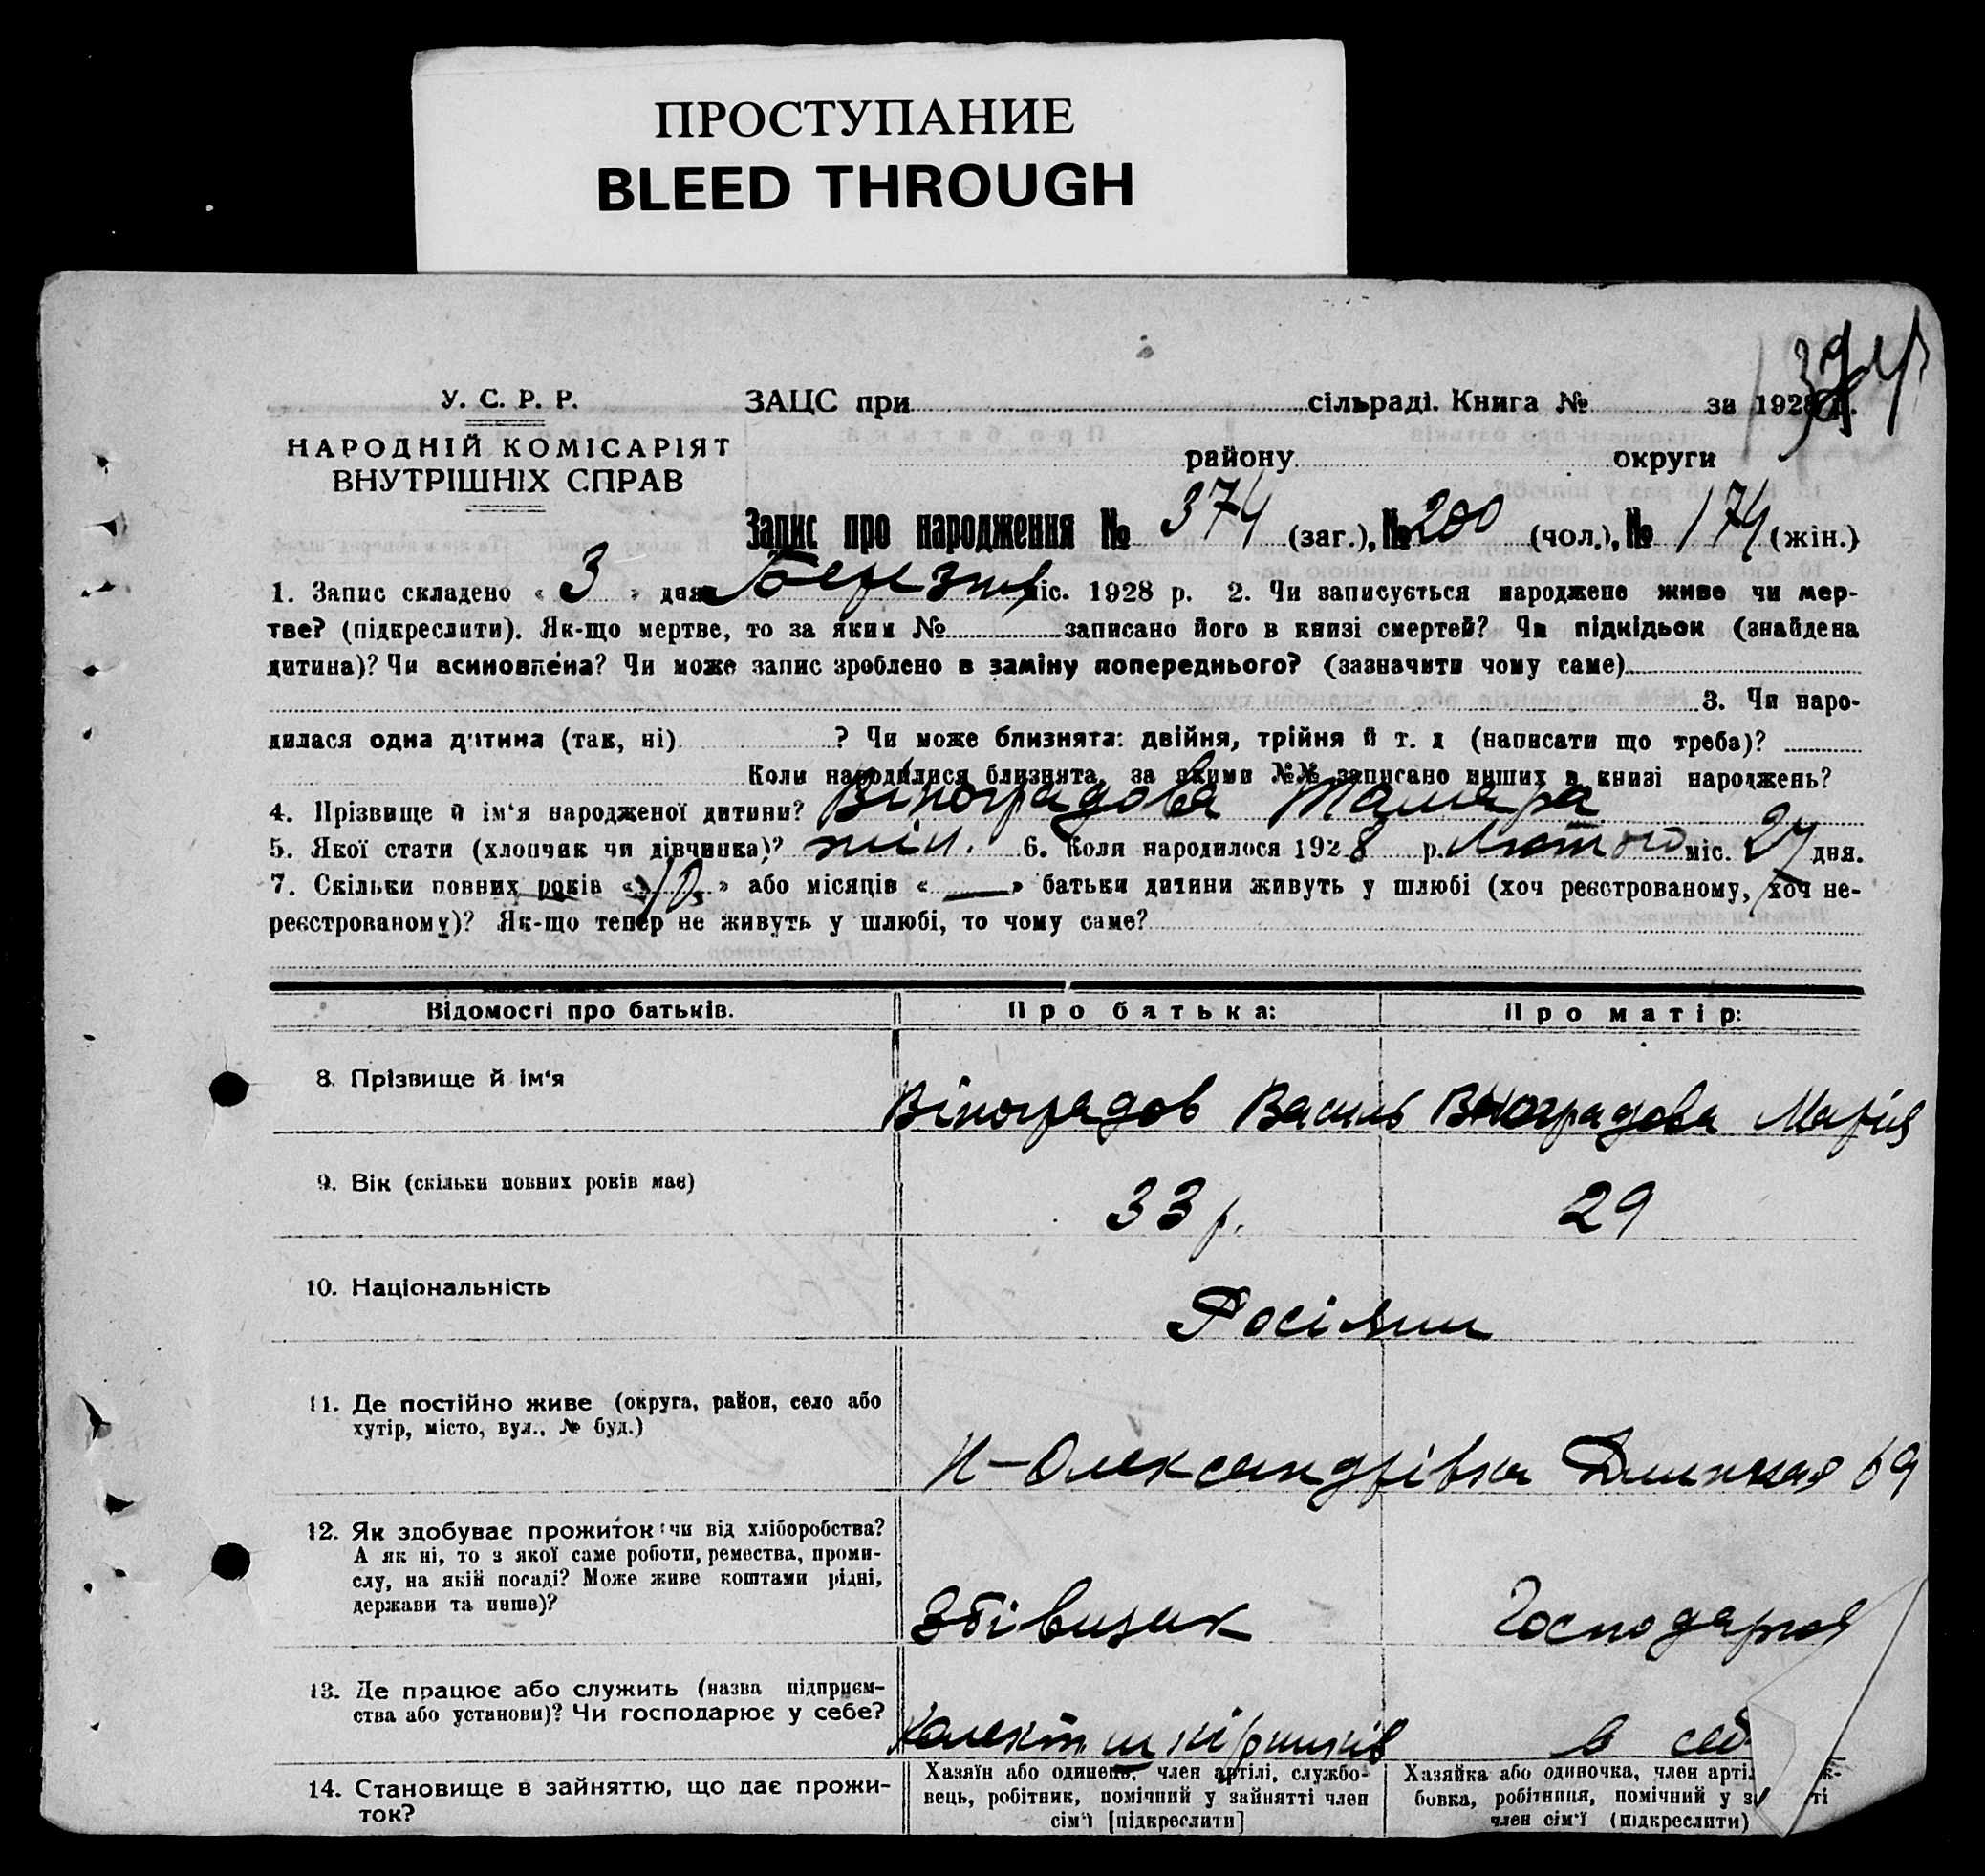 ПРОСТУПАНИЕ
BLEED THROUGH
374
У. С. Р. Р.
НАРОДНІЙ КОМІСАРІЯТ
ВНУТРІШНІХ СПРАВ
ЗАЦС при сільраді. Книга № за 1928 р.
району округи
Запис про народження № 374 (заг.), № 200 (чол.), № 174 (жін.)
1. Запис складено « 3 » дня Березня міс. 1928 р. 2. Чи записується народжене живе чи мер-
тве? (підкреслити). Як-що мертве, то за яким № записано його в книзі смертей? Чи підкідьок (знайдена
дитина)? Чи всиновлена? Чи може запис зроблено в заміну попереднього? (зазначити чому саме)
3. Чи наро-
дилася одна дитина (так, ні) ? Чи може близнята: двійня, трійня й т. д (написати що треба)?
Коли народилися близнята, за якими №№ записано инших в книзі народжень?
4. Прізвище й ім'я народженої дитини? Віноградова Тамара
5. Якої стати (хлопчик чи дівчинка)? жін. 6. Коли народилося 1928 р. Лютого міс. 27 дня.
7. Скільки повних років « 10 » або місяців « — » батьки дитини живуть у шлюбі (хоч реєстрованому, хоч не-
реєстрованому)? Як-що тепер не живуть у шлюбі, то чому саме?
Відомості про батьків. Про батька: Про матір:
8. Прізвище й ім'я Віноградов Василь Виноградова Марія
9. Вік (скільки повних років має) 33 р. 29
10. Національність Росіяни
11. Де постійно живе (округа, район, село або
хутір, місто, вул., № буд.)
Н-Олександрівка 69
12. Як здобуває прожиток: чи від хліборобства?
А як ні, то з якої саме роботи, ремества, проми-
слу, на якій посаді? Може живе коштами рідні,
держави та инше)?
Господарка
13. Де працює або служить (назва підприєм-
ства або установи)? Чи господарює у себе?
Колект. шкірників в себ
14. Становище в зайняттю, що дає прожи-
ток?
Хазяїн або одинець, член артілі, службо-
вець, робітник, помічний у зайнятті член
сім'ї [підкреслити]
Хазяйка або одиночка, член арті
бовка, робітниця, помічний у з ті
член сім'ї (підкреслити)